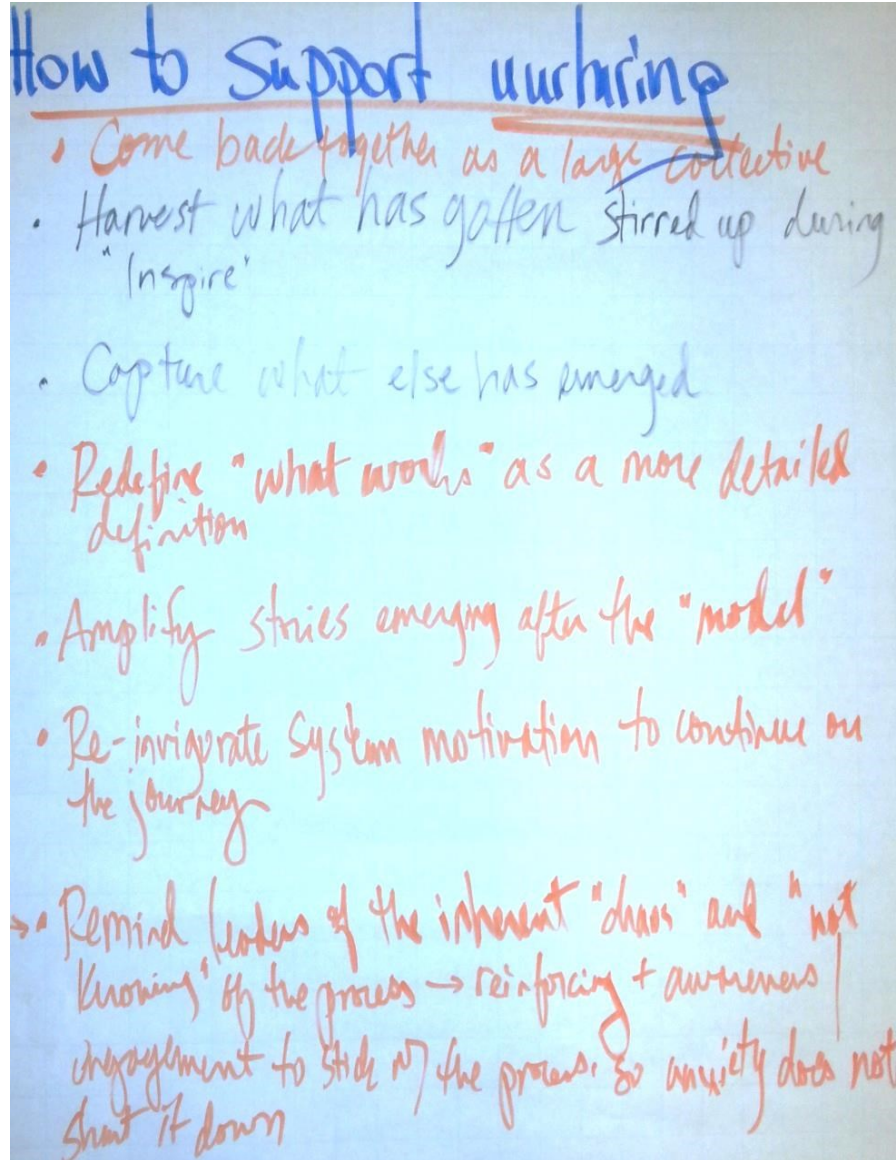 How to Support nurturing
• Come back together as a large collective
• Harvest what has gotten stirred up during
"Inspire"
• Capture what else has emerged
• Redefine "what works" as a more detailed
definition
• Amplify stories emerging after the "model"
• Re-invigorate system motivation to continue on
the journey
→ • Remind leaders of the inherent "chaos" and "not
knowing" of the process → reinforcing + awareness |
engagement to stick w/ the process. So anxiety does not
shut it down